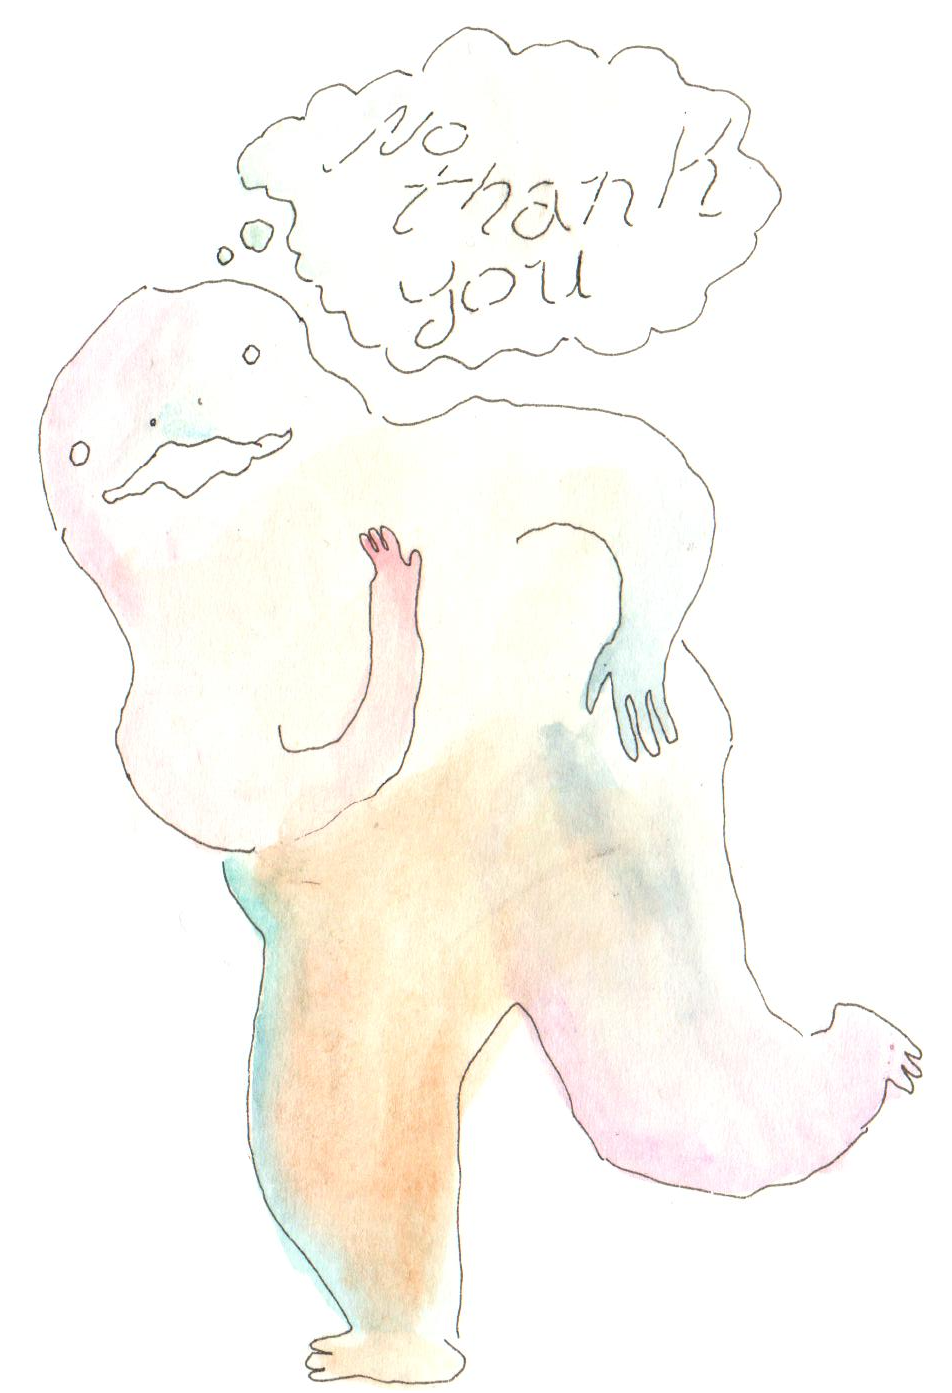 No
thank
you